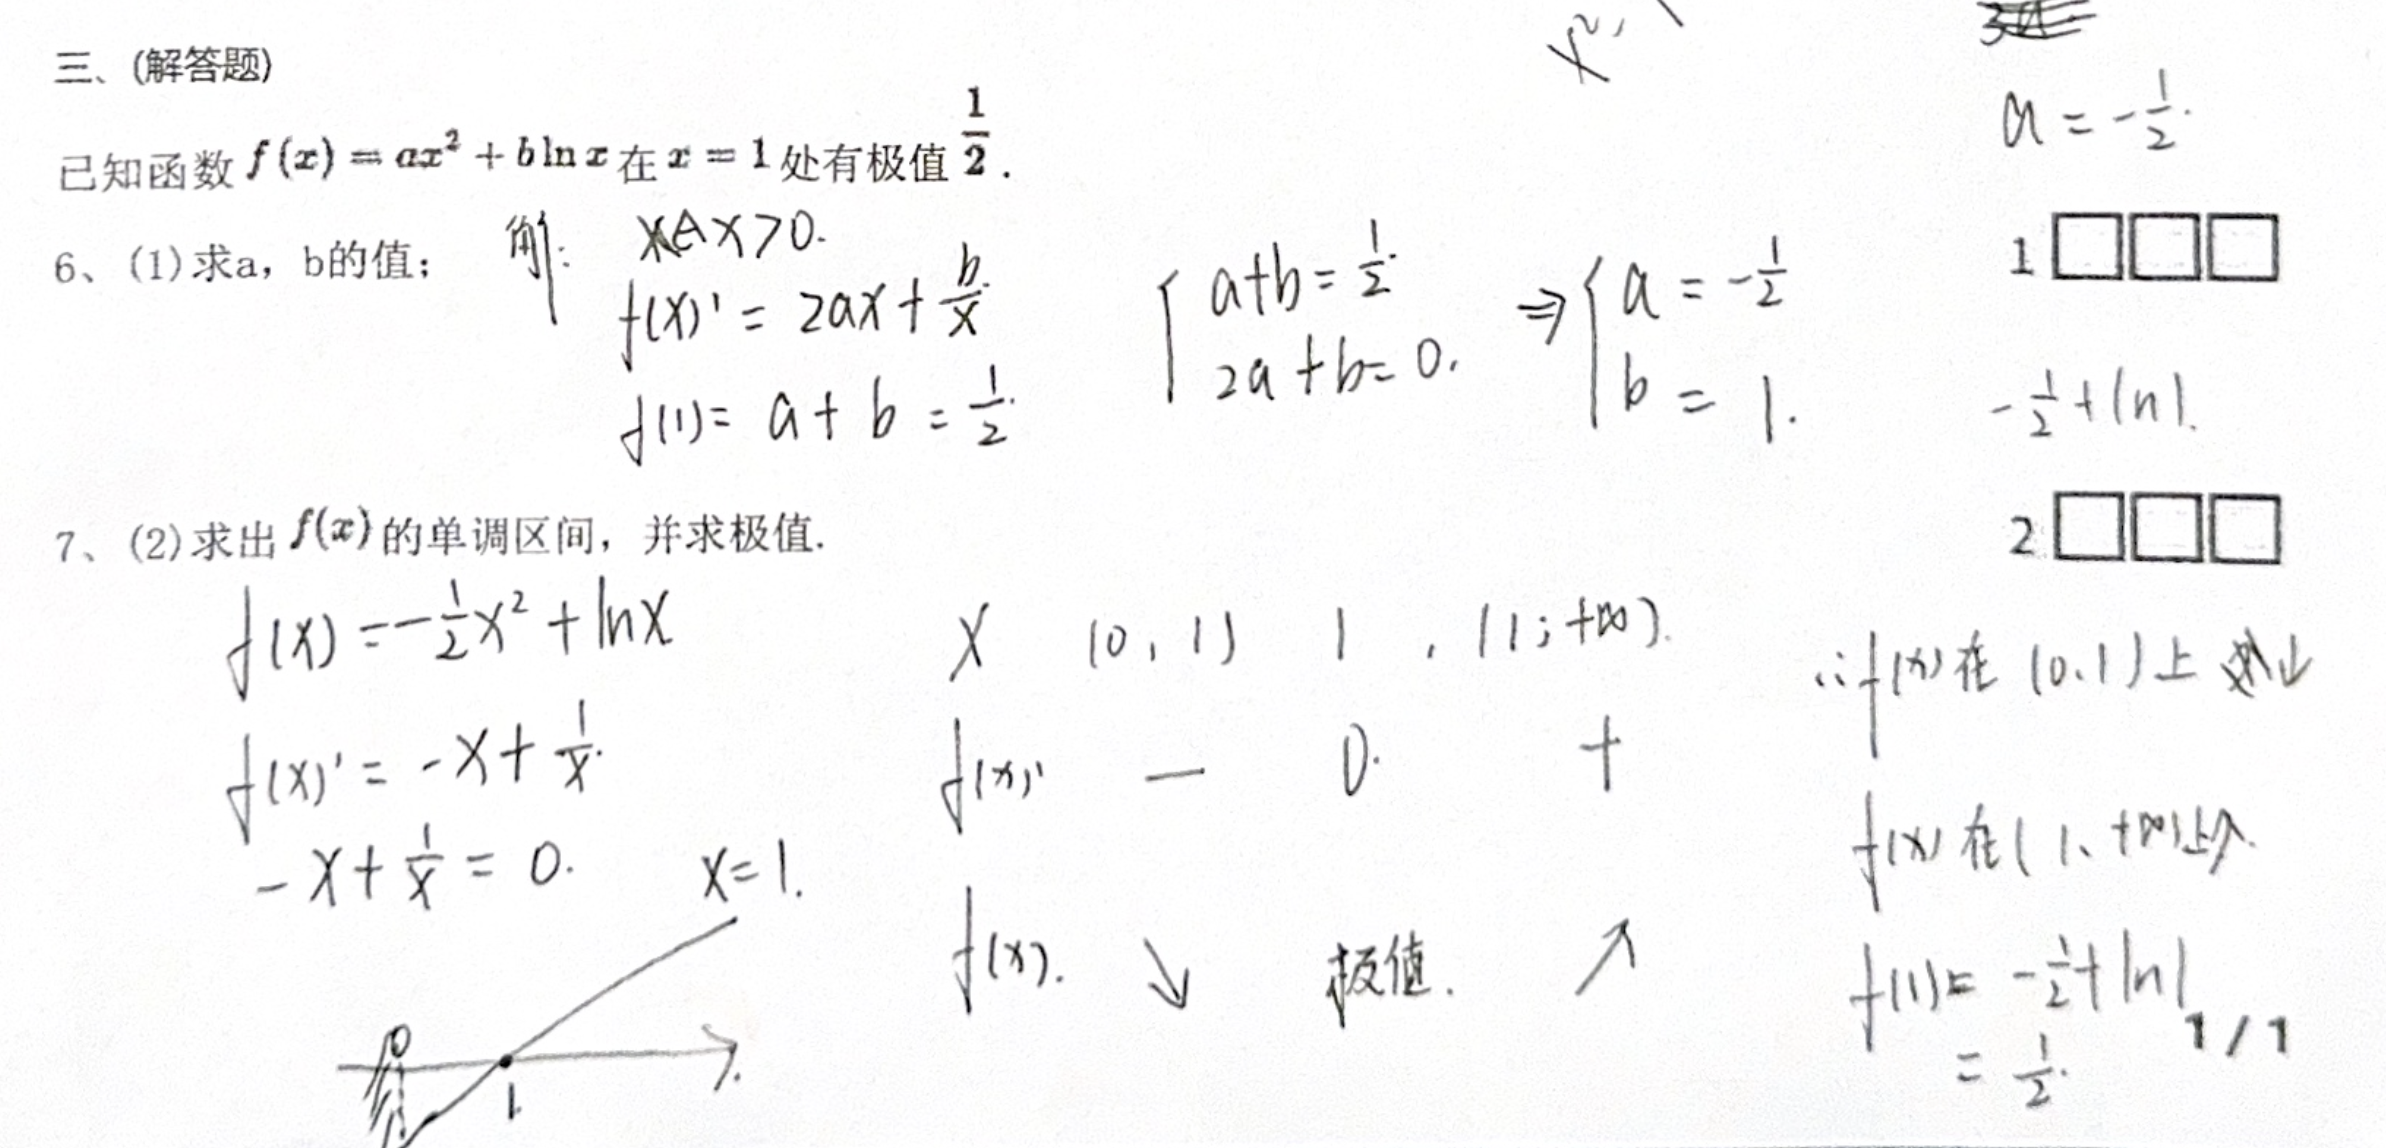 三、(解答题)
已知函数 f(x) = ax² + b ln x 在 x = 1 处有极值 1/2 .
6、(1)求a，b的值；
解: x>0.
f(x)' = 2ax + b/x
f(1) = a + b = 1/2.
{ a+b = 1/2.
2a+b = 0.
⇒ { a = -1/2
b = 1.
a = -1/2.
1 □□□
-1/2 + ln1.
2 □□□
7、(2)求出 f(x) 的单调区间，并求极值.
f(x) = -1/2 x² + lnx
f(x)' = -x + 1/x.
-x + 1/x = 0. x=1.
0 1
x (0, 1) 1 , (1; +∞).
f(x)' — 0. +
f(x). ↘ 极值. ↗
∴ f(x) 在 (0.1) 上 ↓
f(x) 在 (1、+∞) 上↗.
f(1) = -1/2 + ln1
= 1/2.
x²,
1 / 1